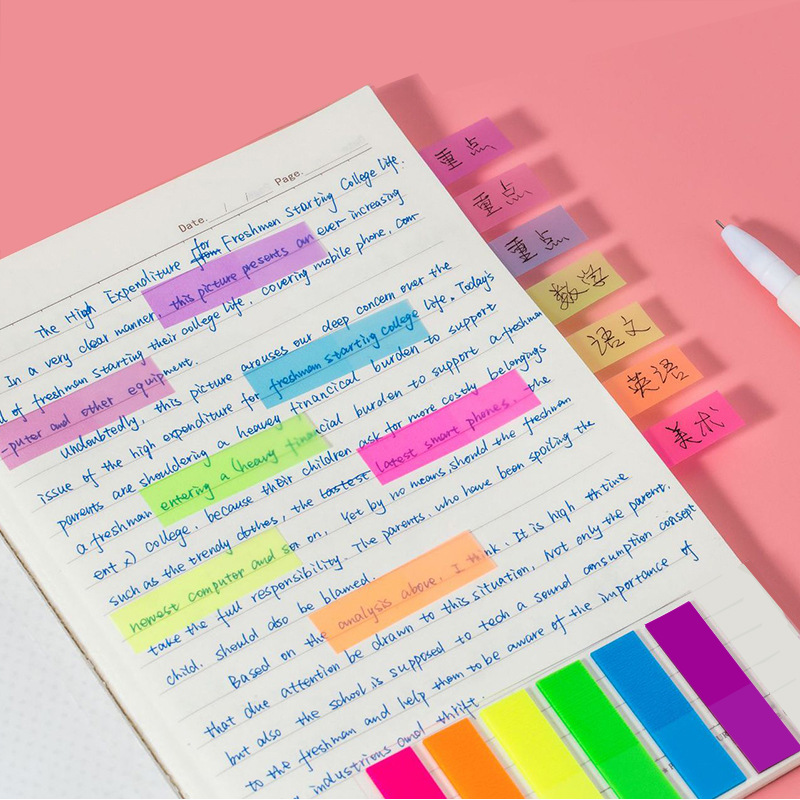 Date. / / Page.
The High Expenditure for Freshmen Starting College Life.
In a very clear manner, this picture presents an ever-increasing
of freshman starting their college life, covering mobile phone, com-
-puter and other equipment.
Undoubtedly, this picture arouses our deep concern over the
issue of the high expenditure for freshman starting college life. Today's
parents are shouldering a heavey financical burden to support
a freshman entering a (heavy financical burden to support a freshman
ent x) college, because their children ask for more costly belongings
such as the trendy clothes, the lastest latest smart phones, the
newest computer and so on, yet by no means should the freshman
take the full responsibility. The parents, who have been spoiling the
child, should also be blamed.
Based on the analysis above, I think, It is high thtime
that due attention be drawn to this situation, Not only the parent
but also the school is supposed to tech a sound consumption consept
to the freshman and help them to be aware of the importance of
industrious and thrift.
重点
重点
重点
数学
语文
英语
美术